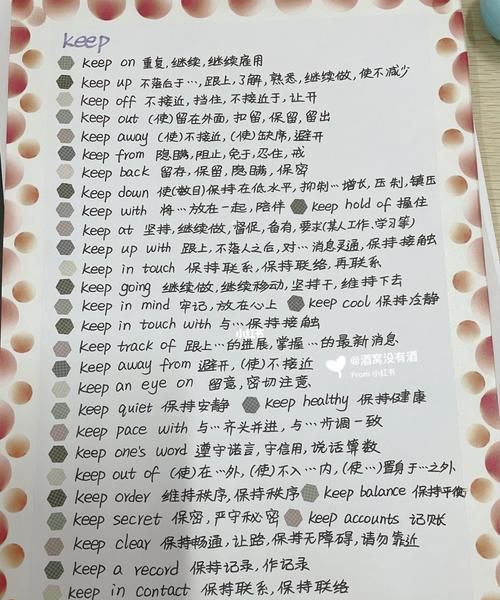 keep
keep on 重复,继续,继续雇用
keep up 不落后于…,跟上,了解,熟悉,继续做,使不减少
keep off 不接近,挡住,不接近于,让开
keep out (使)留在外面,扣留,保留,留出
keep away (使)不接近,(使)缺席,避开
keep from 隐瞒,阻止,免于,忍住,戒
keep back 留存,保留,隐瞒,保密
keep down 使(数目)保持在低水平,抑制…增长,压制,镇压
keep with 将…放在一起,陪伴 keep hold of 握住
keep at 坚持,继续做,督促,备有,要求(某人工作、学习等)
keep up with 跟上,不落人之后,对…消息灵通,保持接触
keep in touch 保持联系,保持联络,再联系
keep going 继续做,继续移动,坚持干,维持下去
keep in mind 牢记,放在心上 keep cool 保持冷静
keep in touch with 与…保持接触
小红书
keep track of 跟上…的进展,掌握…的最新消息
keep away from 避开,(使)不接近
@酒窝没有酒
From 小红书
keep an eye on 留意,密切注意
keep quiet 保持安静 keep healthy 保持健康
keep pace with 与…齐头并进,与…步调一致
keep one's word 遵守诺言,守信用,说话算数
keep out of (使)在…外,(使)不入…内,(使…)置身于…之外
keep order 维持秩序,保持秩序 keep balance 保持平衡
keep secret 保密,严守秘密 keep accounts 记账
keep clear 保持畅通,让路,保持无障碍,请勿靠近
keep a record 保持记录,作记录
keep in contact 保持联系,保持联络